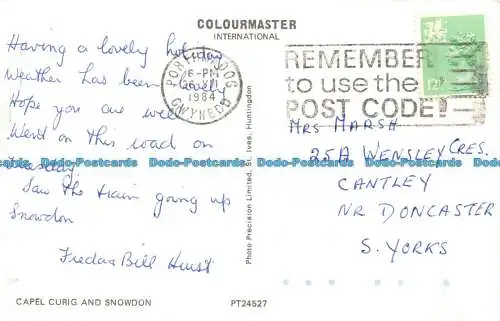 COLOURMASTER
INTERNATIONAL
Friday
Having a lovely holiday
Weather has been
Hope you are well
Went on this road on
Tuesday
Saw the train going up
Snowdon
Freda & Bill Hurst
CAPEL CURIG AND SNOWDON
PT24527
Photo Precision Limited, St. Ives, Huntingdon
6-PM
1984
GWYNEDD
REMEMBER
to use the
POST CODE!
MRS MARSH
25A WENSLEY CRES.
CANTLEY
NR DONCASTER
S. YORKS
Dodo-Postcards Dodo-Postcards Dodo-Postcards Dodo-Postcards Dodo-Postcards